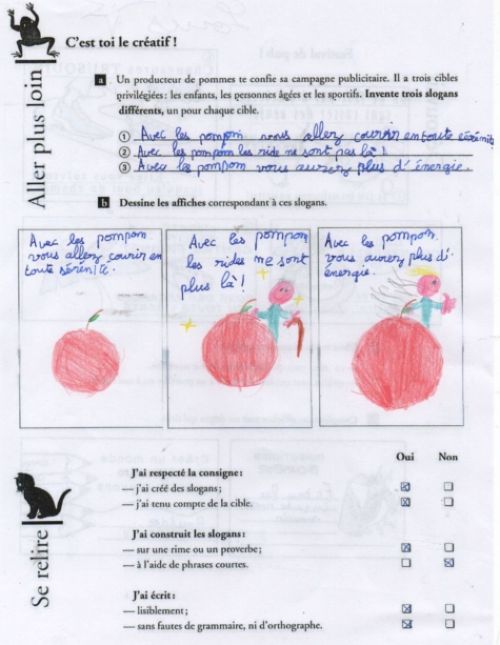 C'est toi le créatif !
Aller plus loin
a Un producteur de pommes te confie sa campagne publicitaire. Il a trois cibles
privilégiées : les enfants, les personnes âgées et les sportifs. Invente trois slogans
différents, un pour chaque cible.
① Avec les pompom vous allez courir en toute sérénité
② Avec les pompom les ride ne sont pas là !
③ Avec le pompom vous aurez plus d'énergie.
b Dessine les affiches correspondant à ces slogans.
Avec les pompom
vous allez courir en
toute sérénité.
Avec les pompom
les rides ne sont
plus là !
Avec les pompom.
vous aurez plus d'
énergie.
Oui Non
Se relire
J'ai respecté la consigne :
— j'ai créé des slogans ;
— j'ai tenu compte de la cible.
J'ai construit les slogans :
— sur une rime ou un proverbe ;
— à l'aide de phrases courtes.
J'ai écrit :
— lisiblement ;
— sans fautes de grammaire, ni d'orthographe.